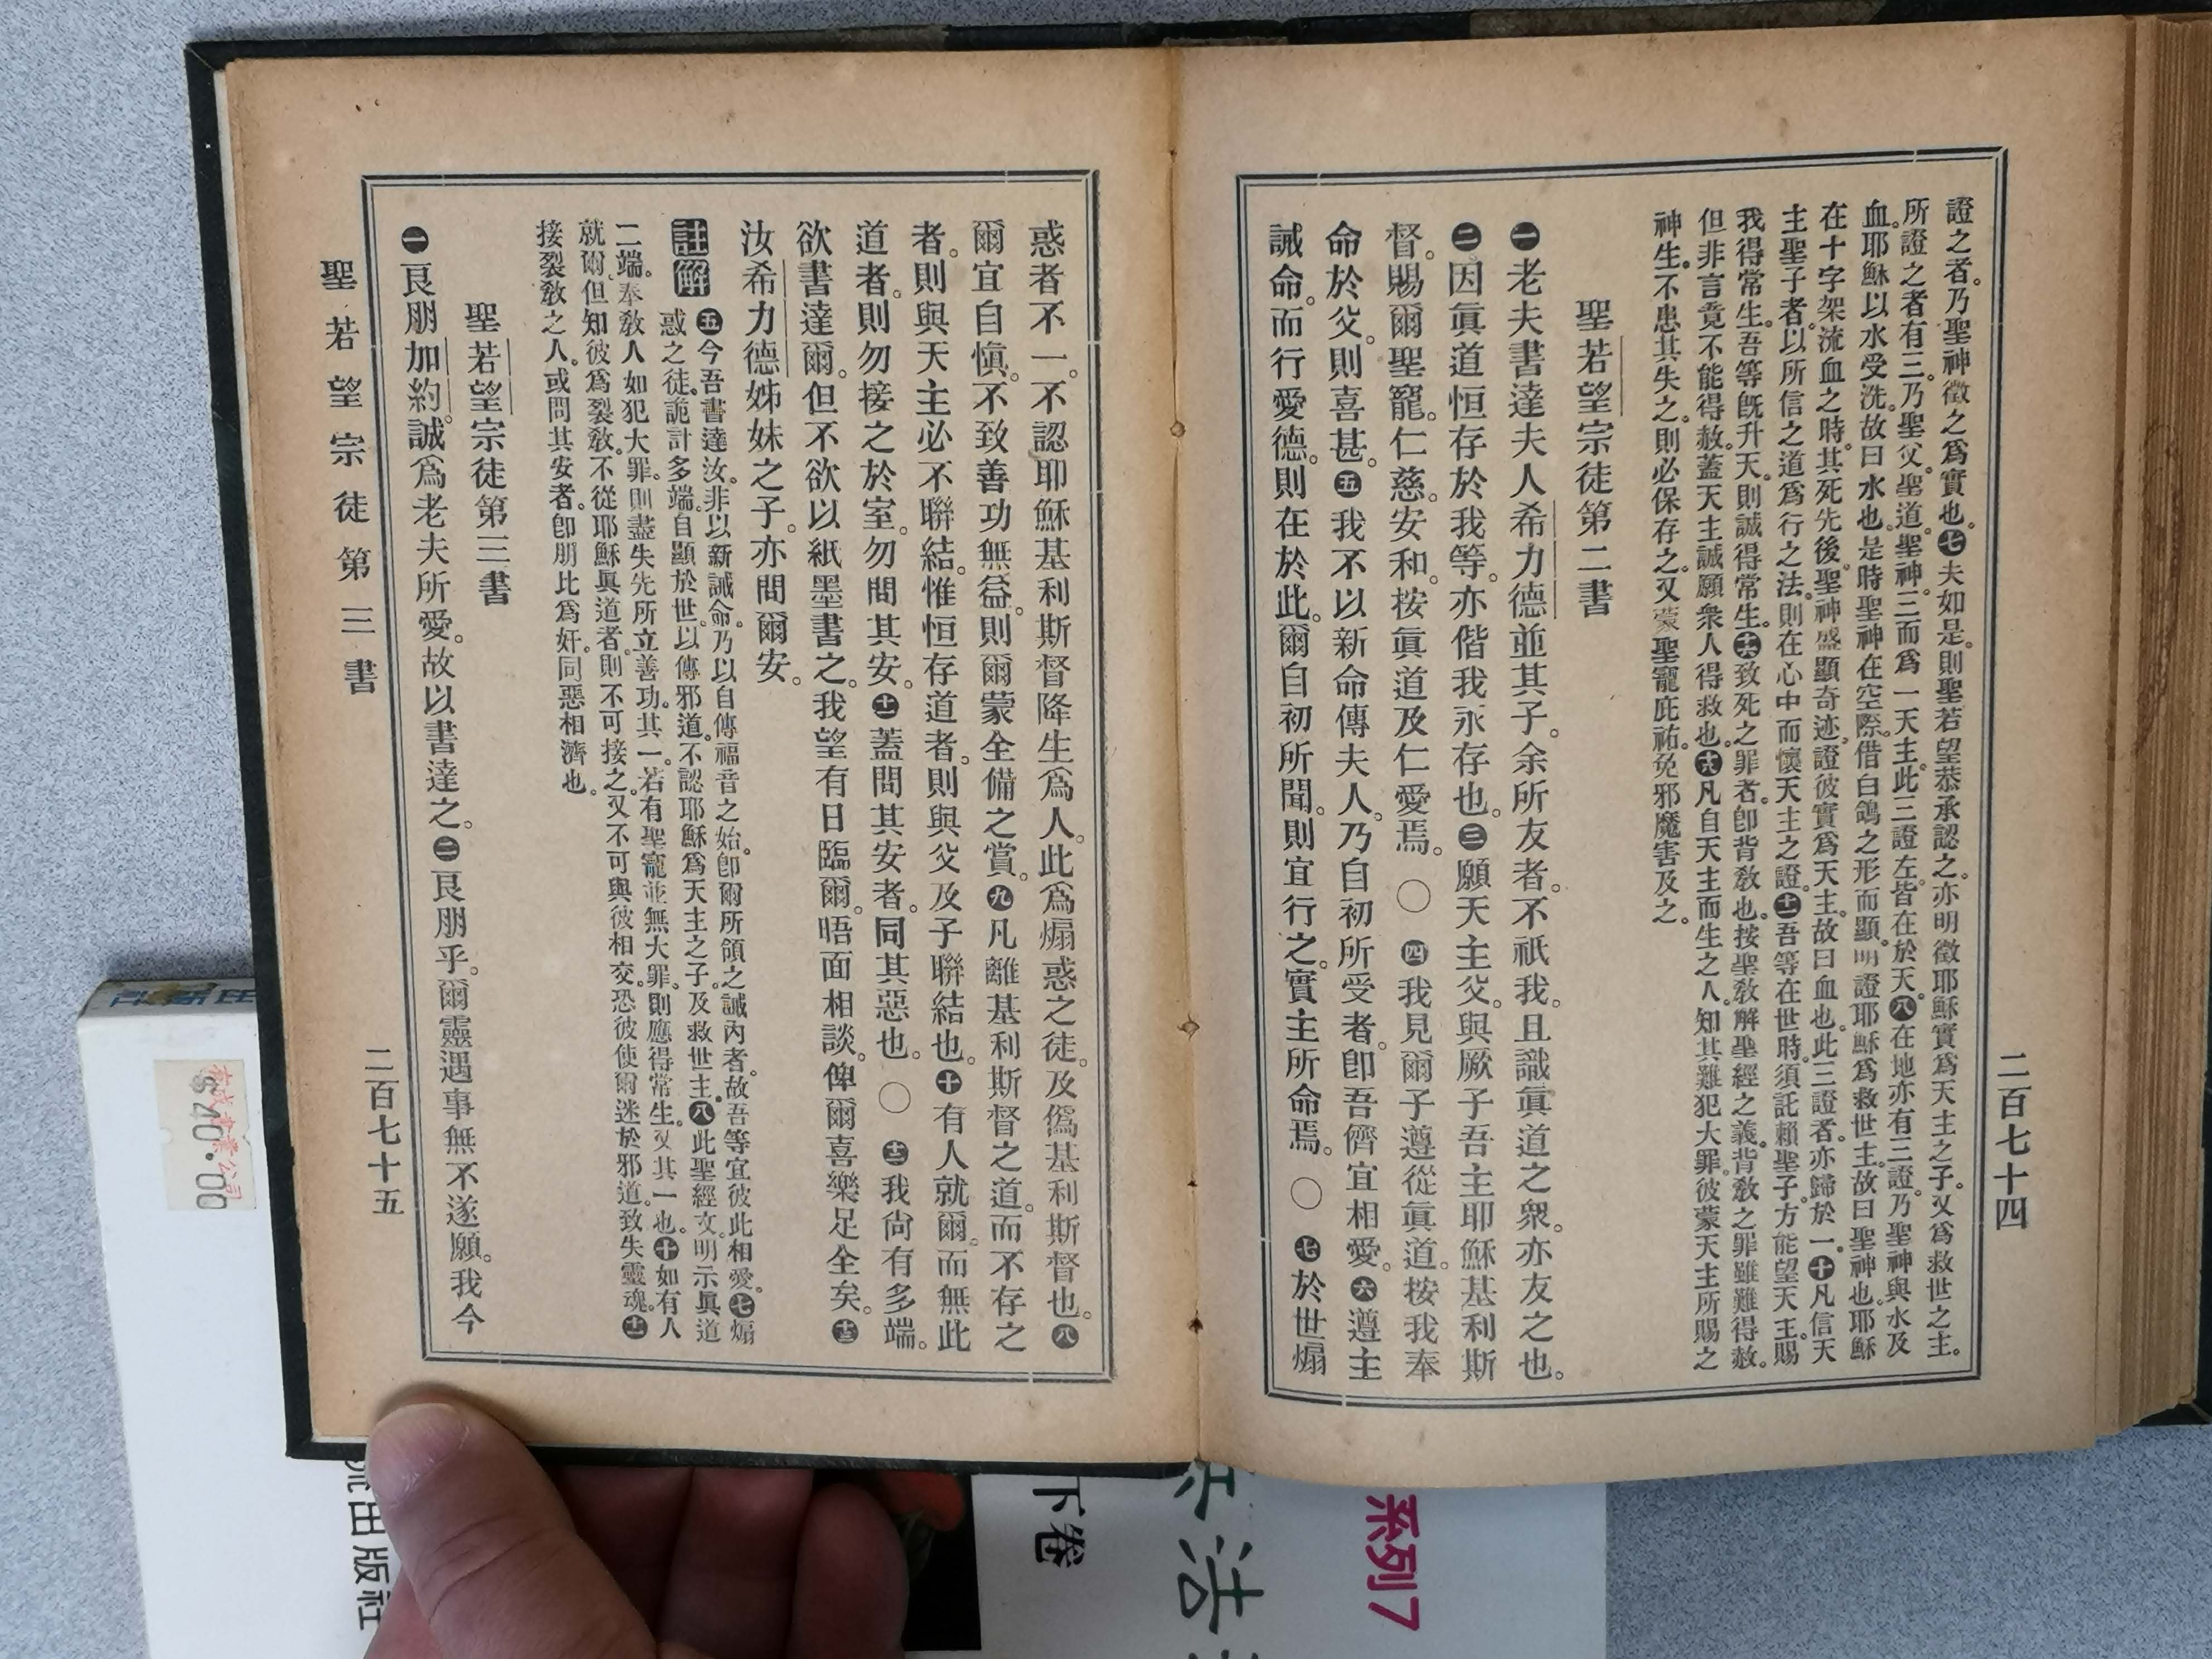 證之者。乃聖神徵之爲實也。七夫如是。則聖若望恭承認之。亦明徵耶穌實爲天主之子。又爲救世之主。
所證之者有三。乃聖父。聖道。聖神。三而爲一天主。此三證左。皆在於天。八在地亦有三證。乃聖神與水及
血。耶穌以水受洗。故曰水也。是時聖神在空際。借白鴿之形而顯。明證耶穌爲救世主。故曰聖神也。耶穌
在十字架流血之時。其死先後。聖神盛顯奇迹。證彼實爲天主。故曰血也。此三證者。亦歸於一。十凡信天
主聖子者。以所信之道爲行之法。則在心中而懷天主之證。十二吾等在世時。須託賴聖子。方能望天主。賜
我得常生。吾等旣升天。則誠得常生。十六致死之罪者。卽背敎也。按聖敎解聖經之義。背敎之罪雖難得赦。
但非言竟不能得赦。蓋天主誠願衆人得救也。十八凡自天主而生之人。知其難犯大罪。彼蒙天主所賜之
神生。不患其失之。則必保存之。又蒙聖寵庇祐。免邪魔害及之。
聖若望宗徒第二書
一老夫書達夫人希力德並其子。余所友者。不祇我。且識眞道之衆。亦友之也。
二因眞道恒存於我等。亦偕我永存也。三願天主父。與厥子吾主耶穌基利斯
督。賜爾聖寵。仁慈。安和。按眞道及仁愛焉。○四我見爾子遵從眞道。按我奉
命於父。則喜甚。五我不以新命傳夫人。乃自初所受者。卽吾儕宜相愛。六遵主
誡命。而行愛德。則在於此。爾自初所聞。則宜行之。實主所命焉。○七於世煽
二百七十四
惑者不一。不認耶穌基利斯督降生爲人。此爲煽惑之徒。及僞基利斯督也。八
爾宜自愼。不致善功無益。則爾蒙全備之賞。九凡離基利斯督之道。而不存之
者。則與天主必不聯結。惟恒存道者。則與父及子聯結也。十有人就爾。而無此
道者。則勿接之於室。勿問其安。十一蓋問其安者。同其惡也。○十二我尙有多端。
欲書達爾。但不欲以紙墨書之。我望有日臨爾。晤面相談。俾爾喜樂足全矣。十三
汝希力德姊妹之子。亦問爾安。
註解 五今吾書達汝。非以新誡命。乃以自傳福音之始。卽爾所領之誡內者。故吾等宜彼此相愛。七煽
惑之徒。詭計多端。自顯於世。以傳邪道。不認耶穌爲天主之子。及救世主。八此聖經文。明示眞道
二端。奉敎人如犯大罪。則盡失先所立善功。其一。若有聖寵並無大罪。則應得常生。又其一也。十如有人
就爾。但知彼爲裂敎。不從耶穌眞道者。則不可接之。又不可與彼相交。恐彼使爾迷於邪道。致失靈魂。十一
接裂敎之人。或問其安者。卽朋比爲奸。同惡相濟也。
聖若望宗徒第三書
一良朋加約。誠爲老夫所愛。故以書達之。二良朋乎。爾靈遇事無不遂願。我今
聖若望宗徒第三書
二百七十五
$40.00
出版社
下卷
系列7